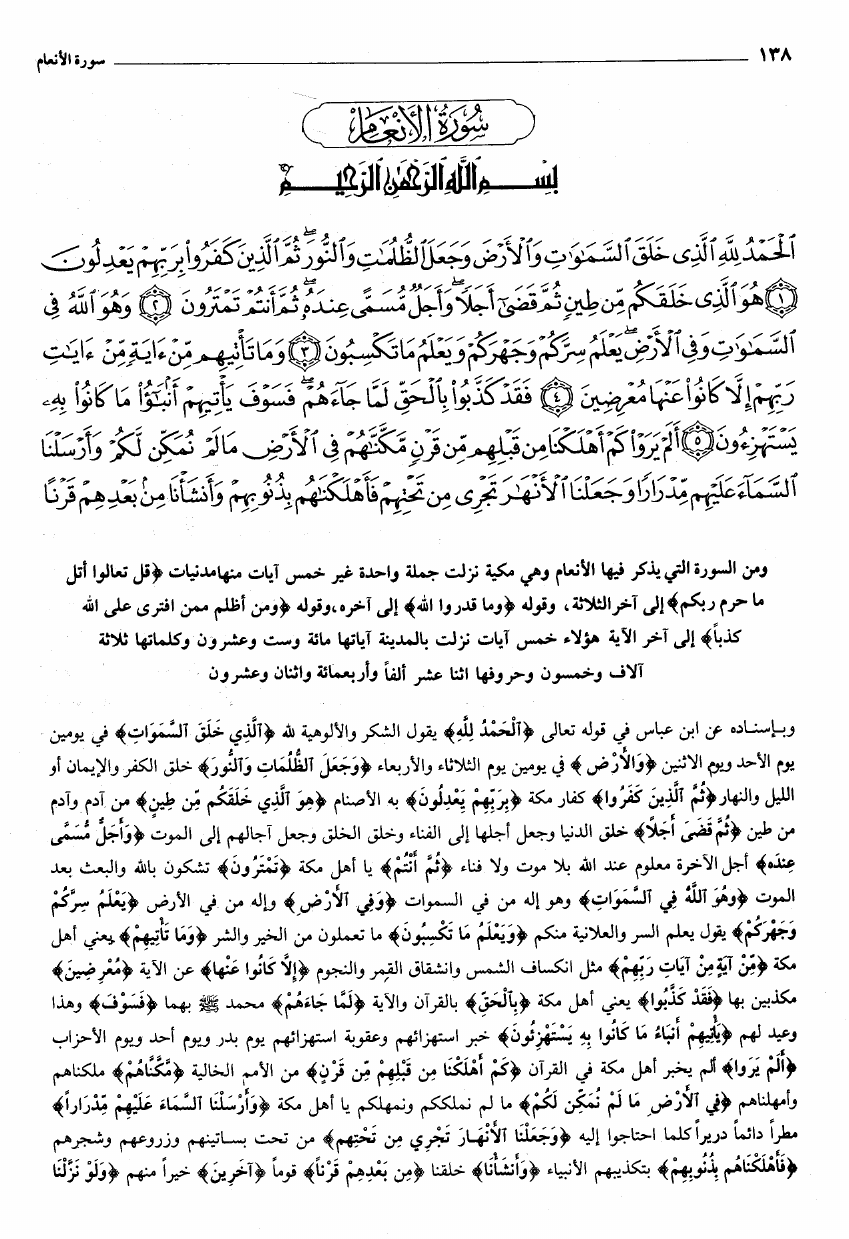 ١٣٨ سورة الأنعام
سُورَةُ الأَنْعَامِ
بِسْمِ اللَّهِ الرَّحْمَٰنِ الرَّحِيمِ
ٱلْحَمْدُ لِلَّهِ ٱلَّذِى خَلَقَ ٱلسَّمَٰوَٰتِ وَٱلْأَرْضَ وَجَعَلَ ٱلظُّلُمَٰتِ وَٱلنُّورَۖ ثُمَّ ٱلَّذِينَ كَفَرُوا۟ بِرَبِّهِمْ يَعْدِلُونَ
﴿١﴾ هُوَ ٱلَّذِى خَلَقَكُم مِّن طِينٍ ثُمَّ قَضَىٰٓ أَجَلًاۖ وَأَجَلٌ مُّسَمًّى عِندَهُۥۖ ثُمَّ أَنتُمْ تَمْتَرُونَ ﴿٢﴾ وَهُوَ ٱللَّهُ فِى
ٱلسَّمَٰوَٰتِ وَفِى ٱلْأَرْضِۖ يَعْلَمُ سِرَّكُمْ وَجَهْرَكُمْ وَيَعْلَمُ مَا تَكْسِبُونَ ﴿٣﴾ وَمَا تَأْتِيهِم مِّنْ ءَايَةٍ مِّنْ ءَايَٰتِ
رَبِّهِمْ إِلَّا كَانُوا۟ عَنْهَا مُعْرِضِينَ ﴿٤﴾ فَقَدْ كَذَّبُوا۟ بِٱلْحَقِّ لَمَّا جَآءَهُمْۖ فَسَوْفَ يَأْتِيهِمْ أَنۢبَٰٓؤُا۟ مَا كَانُوا۟ بِهِۦ
يَسْتَهْزِءُونَ ﴿٥﴾ أَلَمْ يَرَوْا۟ كَمْ أَهْلَكْنَا مِن قَبْلِهِم مِّن قَرْنٍ مَّكَّنَّٰهُمْ فِى ٱلْأَرْضِ مَا لَمْ نُمَكِّن لَّكُمْ وَأَرْسَلْنَا
ٱلسَّمَآءَ عَلَيْهِم مِّدْرَارًا وَجَعَلْنَا ٱلْأَنْهَٰرَ تَجْرِى مِن تَحْتِهِمْ فَأَهْلَكْنَٰهُم بِذُنُوبِهِمْ وَأَنشَأْنَا مِنۢ بَعْدِهِمْ قَرْنًا
ومن السورة التي يذكر فيها الأنعام وهي مكية نزلت جملة واحدة غير خمس آيات منها مدنيات ﴿قل تعالوا أتل
ما حرم ربكم﴾ إلى آخر الثلاثة، وقوله ﴿وما قدروا الله﴾ إلى آخره، وقوله ﴿ومن أظلم ممن افترى على الله
كذباً﴾ إلى آخر الآية هؤلاء خمس آيات نزلت بالمدينة آياتها مائة وست وعشرون وكلماتها ثلاثة
آلاف وخمسون وحروفها اثنا عشر ألفاً وأربعمائة واثنان وعشرون
وبإسناده عن ابن عباس في قوله تعالى ﴿ٱلْحَمْدُ لِلَّهِ﴾ يقول الشكر والألوهية لله ﴿ٱلَّذِي خَلَقَ ٱلسَّمَوَاتِ﴾ في يومين
يوم الأحد ويوم الاثنين ﴿وَٱلأَرْضَ﴾ في يومين يوم الثلاثاء والأربعاء ﴿وَجَعَلَ ٱلظُّلُمَاتِ وَٱلنُّورَ﴾ خلق الكفر والإيمان أو
الليل والنهار ﴿ثُمَّ ٱلَّذِينَ كَفَرُوا﴾ كفار مكة ﴿بِرَبِّهِمْ يَعْدِلُونَ﴾ به الأصنام ﴿هُوَ ٱلَّذِي خَلَقَكُم مِّن طِينٍ﴾ من آدم وآدم
من طين ﴿ثُمَّ قَضَى أَجَلاً﴾ خلق الدنيا وجعل أجلها إلى الفناء وخلق الخلق وجعل آجالهم إلى الموت ﴿وَأَجَلٌ مُّسَمًّى
عِندَهُ﴾ أجل الآخرة معلوم عند الله بلا موت ولا فناء ﴿ثُمَّ أَنْتُمْ﴾ يا أهل مكة ﴿تَمْتَرُونَ﴾ تشكون بالله والبعث بعد
الموت ﴿وَهُوَ ٱللَّهُ فِي ٱلسَّمَوَاتِ﴾ وهو إله من في السموات ﴿وَفِي ٱلأَرْضِ﴾ وإله من في الأرض ﴿يَعْلَمُ سِرَّكُمْ
وَجَهْرَكُمْ﴾ يقول يعلم السر والعلانية منكم ﴿وَيَعْلَمُ مَا تَكْسِبُونَ﴾ ما تعملون من الخير والشر ﴿وَمَا تَأْتِيهِمْ﴾ يعني أهل
مكة ﴿مِّنْ آيَةٍ مِنْ آيَاتِ رَبِّهِمْ﴾ مثل انكساف الشمس وانشقاق القمر والنجوم ﴿إِلاَّ كَانُوا عَنْهَا﴾ عن الآية ﴿مُعْرِضِينَ﴾
مكذبين بها ﴿فَقَدْ كَذَّبُوا﴾ يعني أهل مكة ﴿بِٱلْحَقِّ﴾ بالقرآن والآية ﴿لَمَّا جَاءَهُمْ﴾ محمد ﷺ بهما ﴿فَسَوْفَ﴾ وهذا
وعيد لهم ﴿يَأْتِيهِمْ أَنْبَاءُ مَا كَانُوا بِهِ يَسْتَهْزِئُونَ﴾ خبر استهزائهم وعقوبة استهزائهم يوم بدر ويوم أحد ويوم الأحزاب
﴿أَلَمْ يَرَوا﴾ ألم يخبر أهل مكة في القرآن ﴿كَمْ أَهْلَكْنَا مِن قَبْلِهِمْ مِّن قَرْنٍ﴾ من الأمم الخالية ﴿مَّكَّنَّاهُمْ﴾ ملكناهم
وأمهلناهم ﴿فِي ٱلأَرْضِ مَا لَمْ نُمَكِّن لَكُمْ﴾ ما لم نملككم ونمهلكم يا أهل مكة ﴿وَأَرْسَلْنَا ٱلسَّمَاءَ عَلَيْهِمْ مِّدْرَاراً﴾
مطراً دائماً دريراً كلما احتاجوا إليه ﴿وَجَعَلْنَا ٱلأَنْهَارَ تَجْرِي مِن تَحْتِهِم﴾ من تحت بساتينهم وزروعهم وشجرهم
﴿فَأَهْلَكْنَاهُم بِذُنُوبِهِمْ﴾ بتكذيبهم الأنبياء ﴿وَأَنشَأْنَا﴾ خلقنا ﴿مِن بَعْدِهِمْ قَرْناً﴾ قوماً ﴿آخَرِينَ﴾ خيراً منهم ﴿وَلَوْ نَزَّلْنَا